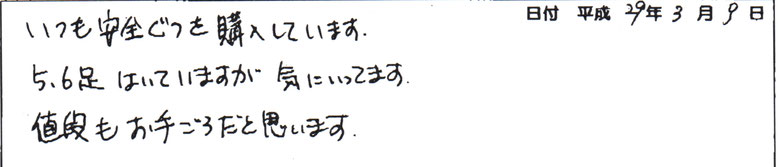 日付 平成 29年 3月 9日
いつも安全ぐつを購入しています.
5、6足 はいていますが 気にいってます.
値段も お手ごろだと思います.